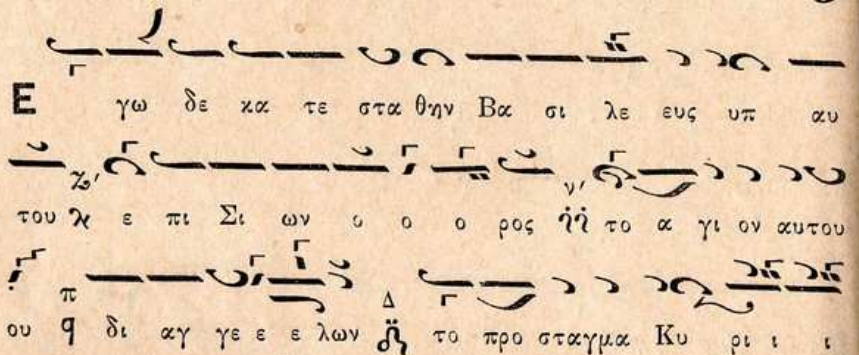 Ε γω δε κα τε στα θην Βα σι λε ευς υπ αυ
του ε πι Σι ων ο ο ο ρος το α γι ον αυτου
ου π δι αγ γε ε ε λων Δ το προ σταγμα Κυ ρι ι ι